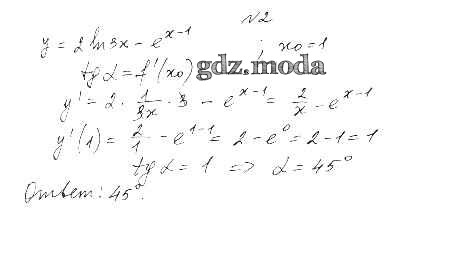 N2
y = 2 ln 3x − e^(x−1) ; x0 = 1
tg α = f'(x0) gdz.moda
y' = 2 · 1/3x · 3 − e^(x−1) = 2/x − e^(x−1)
y'(1) = 2/1 − e^(1−1) = 2 − e^0 = 2 − 1 = 1
tg α = 1 => α = 45°
Ответ: 45°.